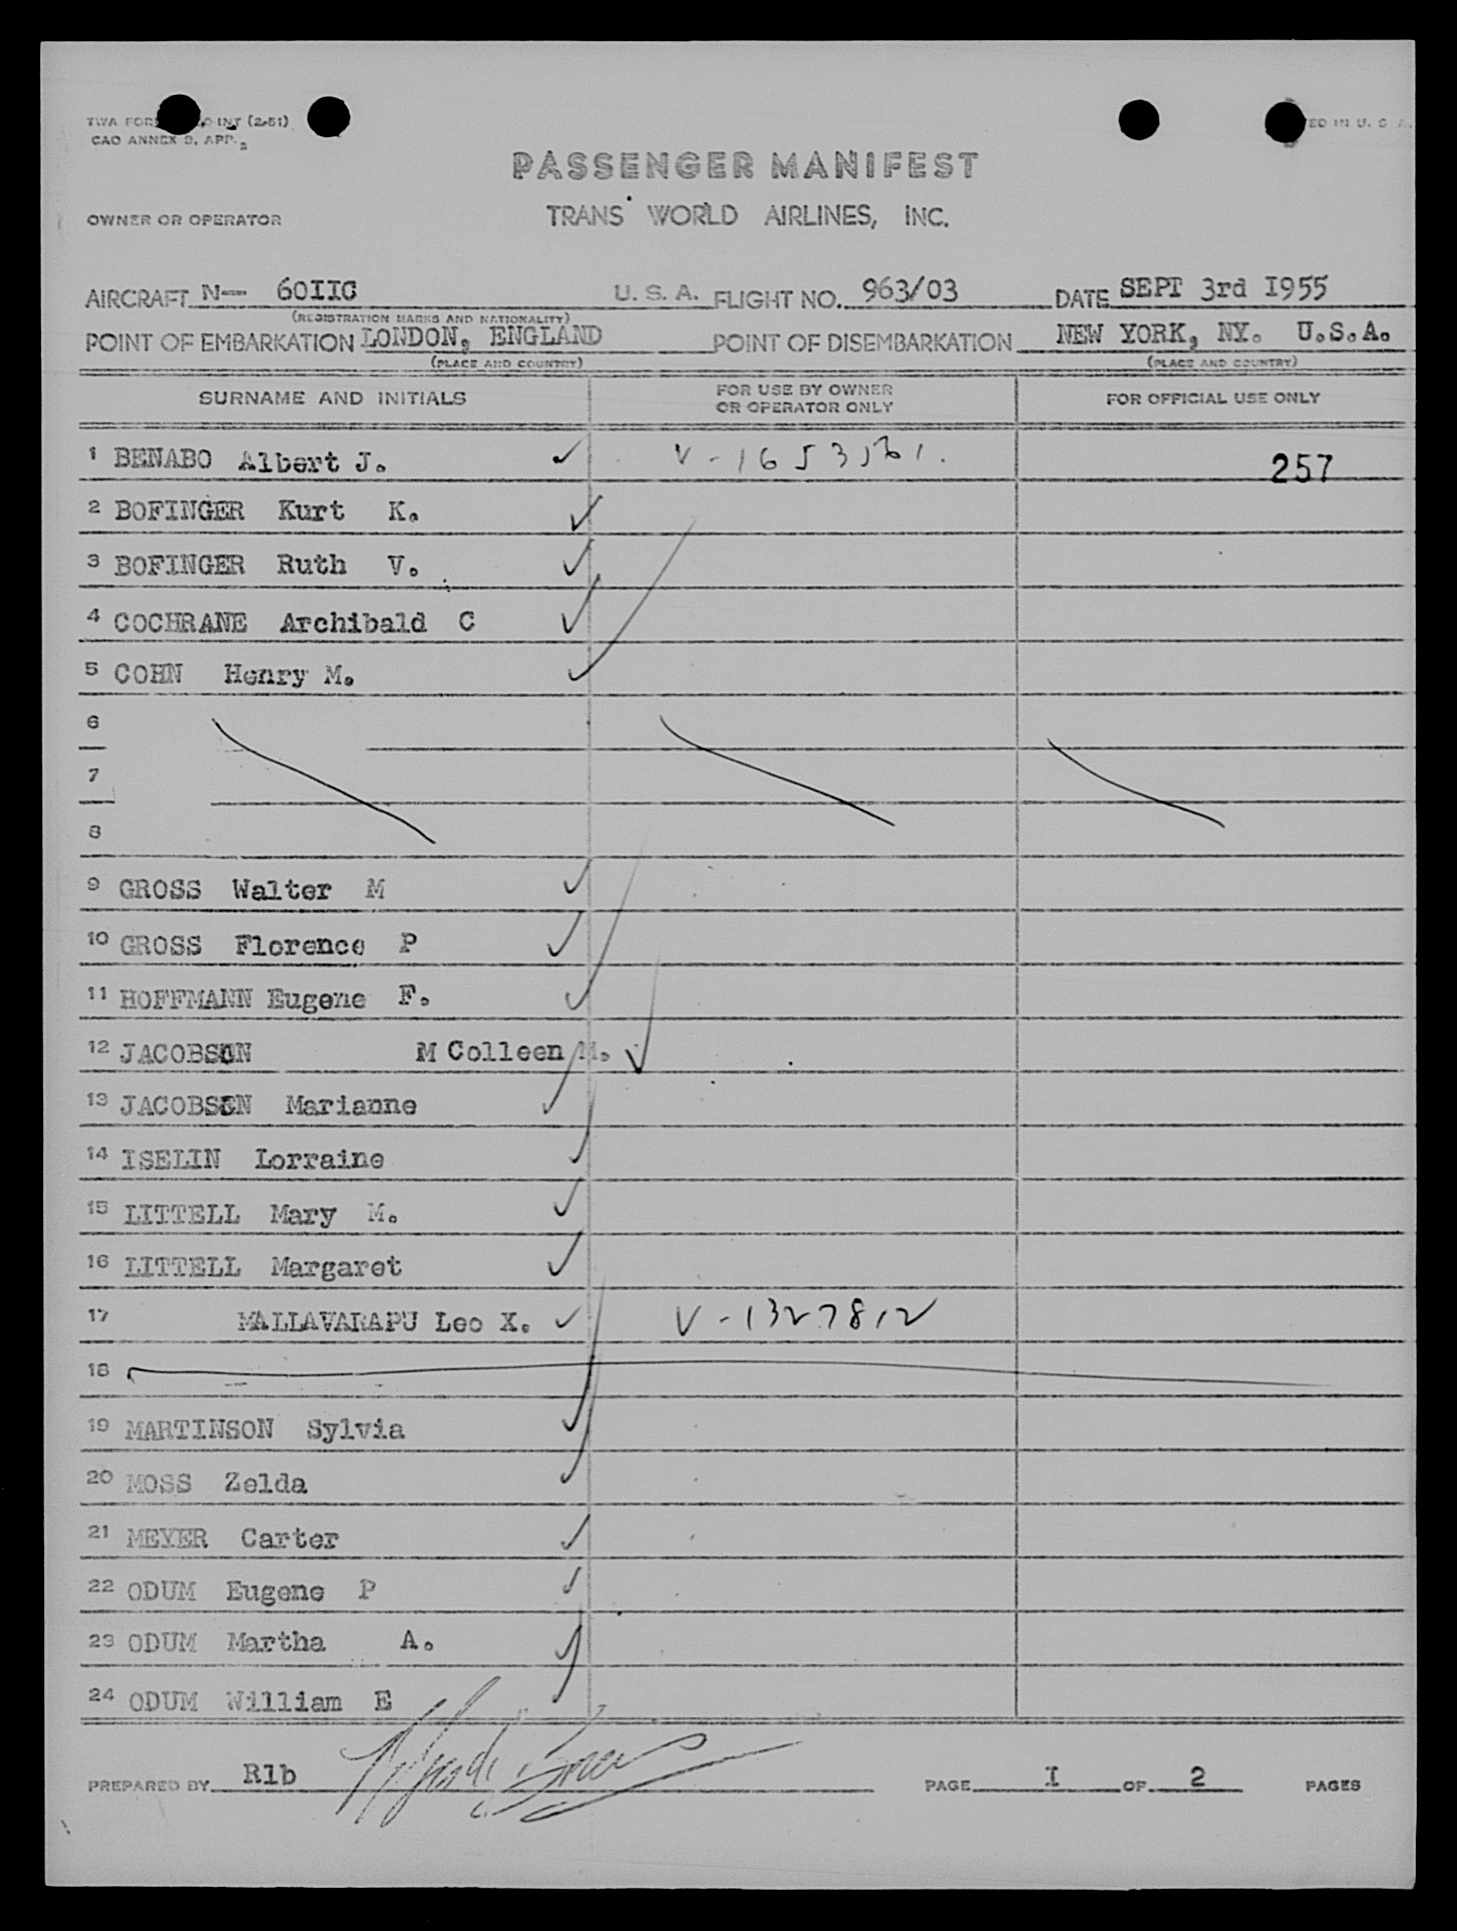 TWA FORM INT (2-51)
CAO ANNEX 9, APP. 2
ED IN U. S. A.
PASSENGER MANIFEST
OWNER OR OPERATOR TRANS WORLD AIRLINES, INC.
AIRCRAFT N— 60IIC U. S. A. FLIGHT NO. 963/03 DATE SEPT 3rd I955
(REGISTRATION MARKS AND NATIONALITY)
POINT OF EMBARKATION LONDON, ENGLAND POINT OF DISEMBARKATION NEW YORK, NY. U.S.A.
(PLACE AND COUNTRY) (PLACE AND COUNTRY)
SURNAME AND INITIALS FOR USE BY OWNER OR OPERATOR ONLY FOR OFFICIAL USE ONLY
1 BENABO Albert J. ✓ 257
2 BOFINGER Kurt K. ✓
3 BOFINGER Ruth V. ✓
4 COCHRANE Archibald C ✓
5 COHN Henry M. ✓
6
7
8
9 GROSS Walter M ✓
10 GROSS Florence P ✓
11 HOFFMANN Eugene F. ✓
12 JACOBSON M Colleen M. ✓
13 JACOBSEN Marianne ✓
14 ISELIN Lorraine ✓
15 LITTELL Mary M. ✓
16 LITTELL Margaret ✓
17 MALLAVARAPU Leo X. ✓ V-1327812
18
19 MARTINSON Sylvia ✓
20 MOSS Zelda ✓
21 MEYER Carter ✓
22 ODUM Eugene P ✓
23 ODUM Martha A. ✓
24 ODUM William E ✓
PREPARED BY Rlb PAGE I OF 2 PAGES